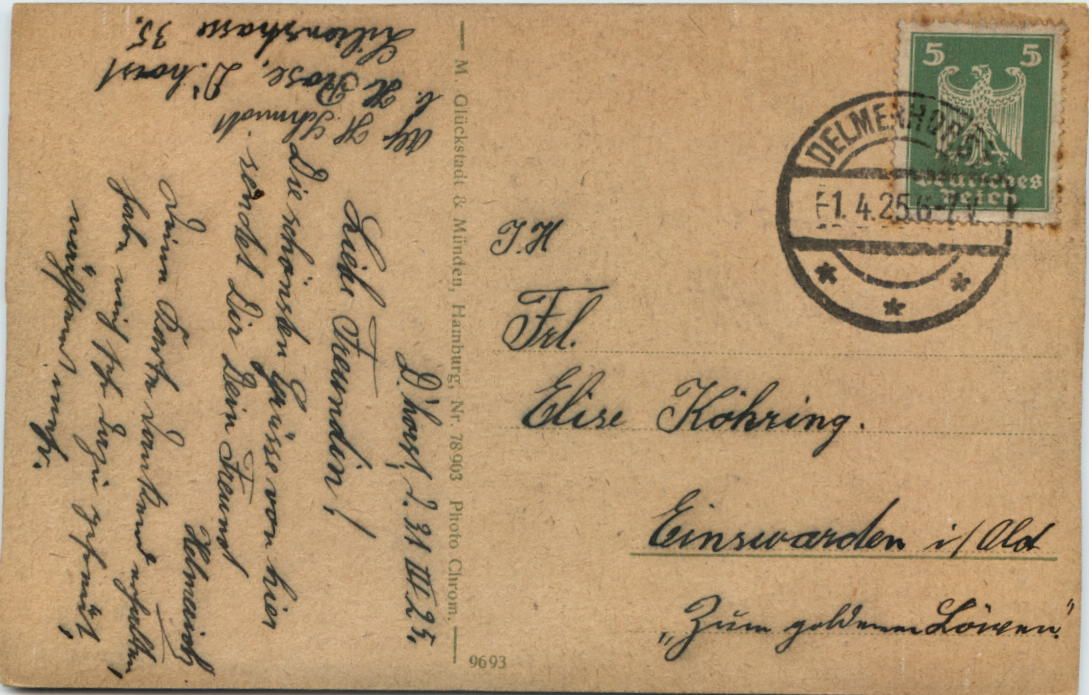 D'horst, d. 31 III 25.
Liebe Freundin!
Die schönsten Grüsse von hier
sendet Dir Dein Freund
Helmerich
Deine Karte dankend erhalten,
habe mich sehr dazu gefreut,
nächstens mehr.
Abs. H. Schmidt
b. H. Rose, D'horst
Lilienstrasse 35.
M. Glückstadt & Münden, Hamburg, Nr. 78903 Photo Chrom.
9693
5 5
Deutsches
Reich
DELMENHORST
-1.4.25.6-7V.
I. H
Frl.
Elise Köhring.
Einswarden i/Old
„Zum goldenen Löwen"